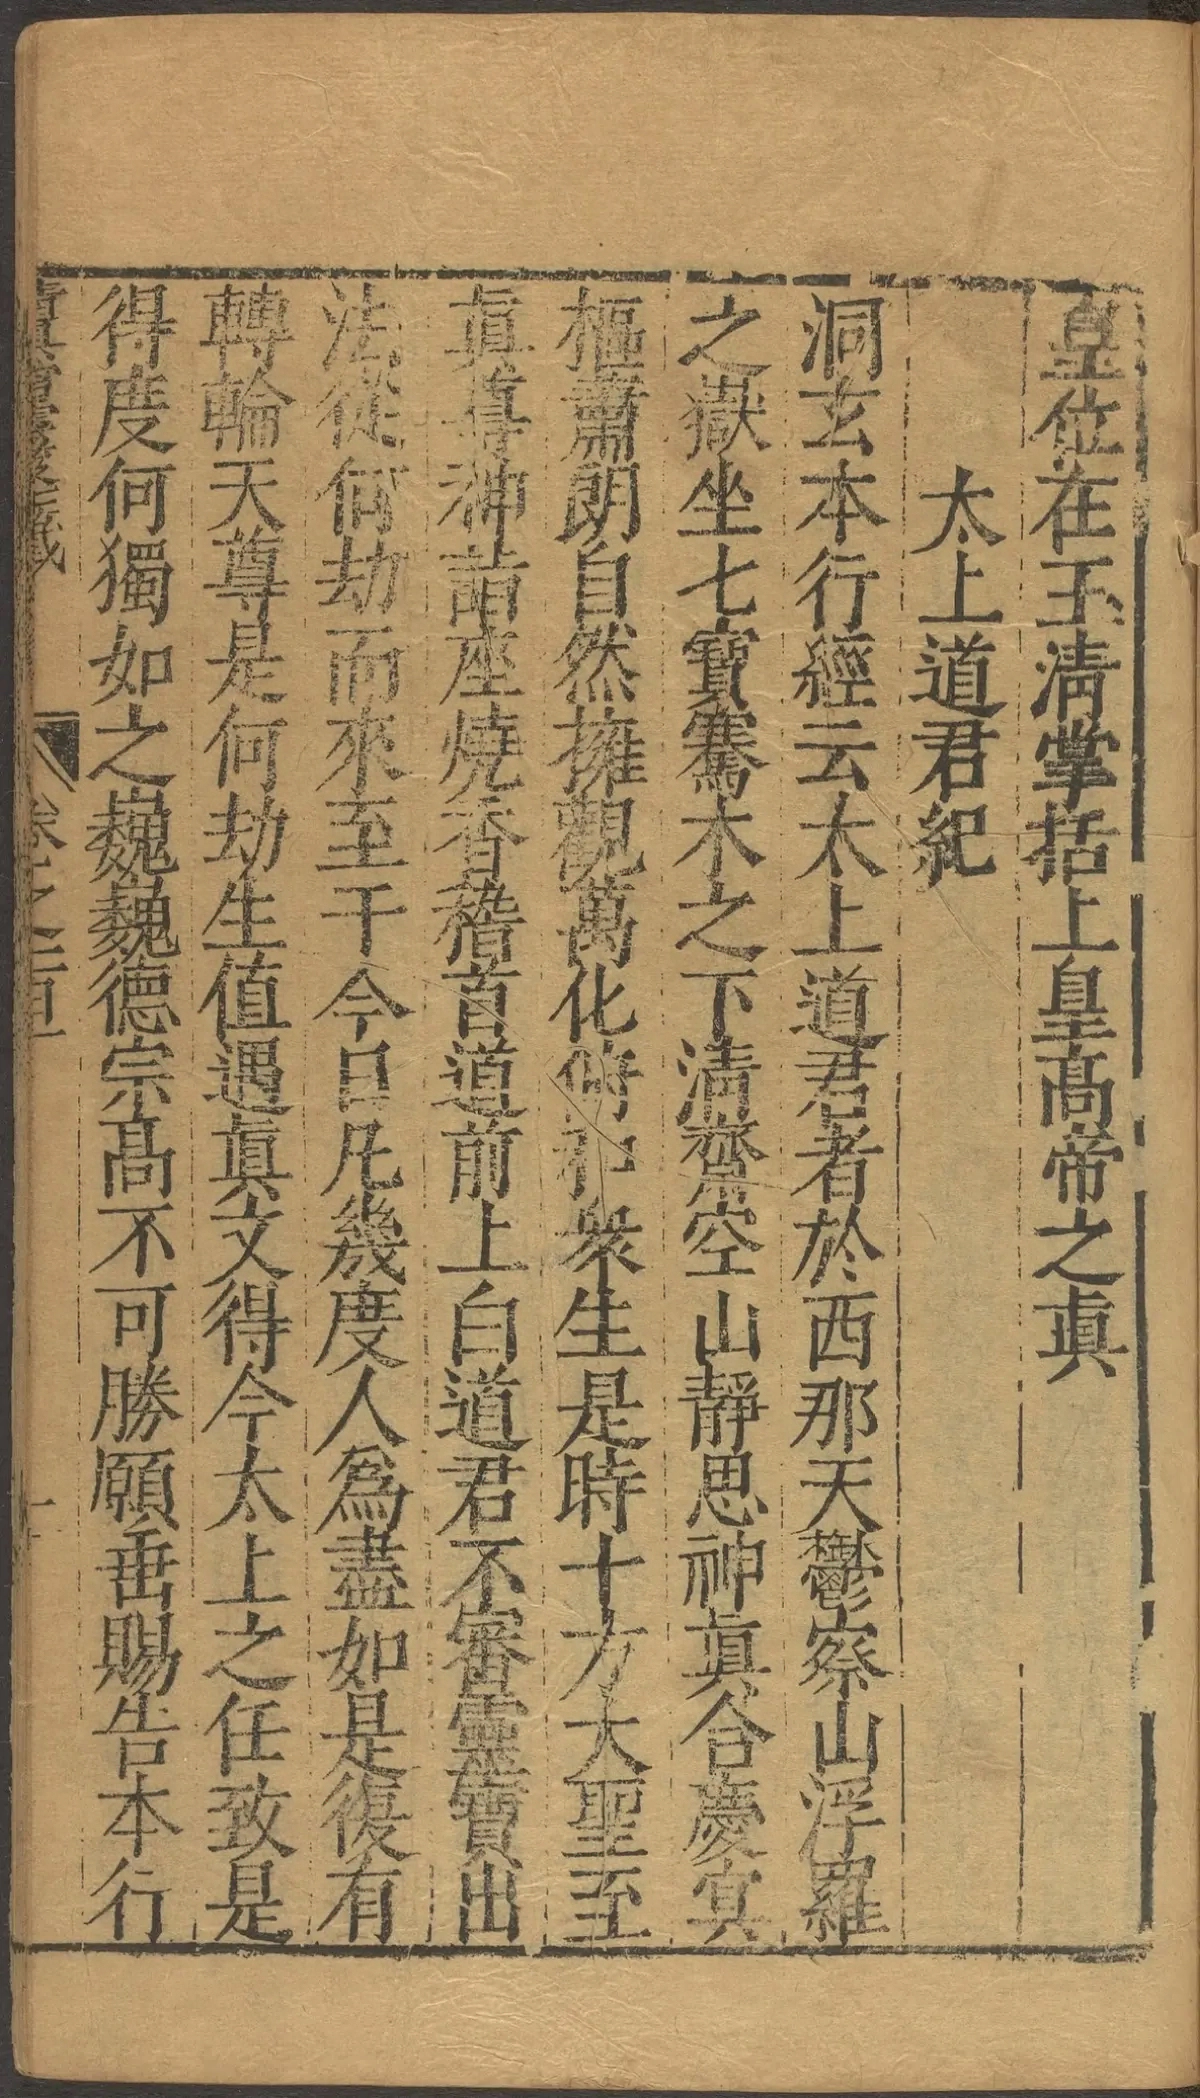 皇位在玉淸掌括上皇髙帝之眞
太上道君紀
洞玄本行經云太上道君者於西那天鬱察山浮羅
之嶽坐七寶騫木之下淸齋空山靜思神眞合慶㝠
樞蕭朗自然擁觀萬化俯和衆生是時十方大聖至
眞尊神詣座燒香稽首道前上白道君不審靈寶出
法從何劫而來至于今日凡幾度人爲盡如是復有
轉輪天尊是何劫生值遇眞文得今太上之任致是
得度何獨如之巍巍德宗髙不可勝願垂賜告本行
卷之三